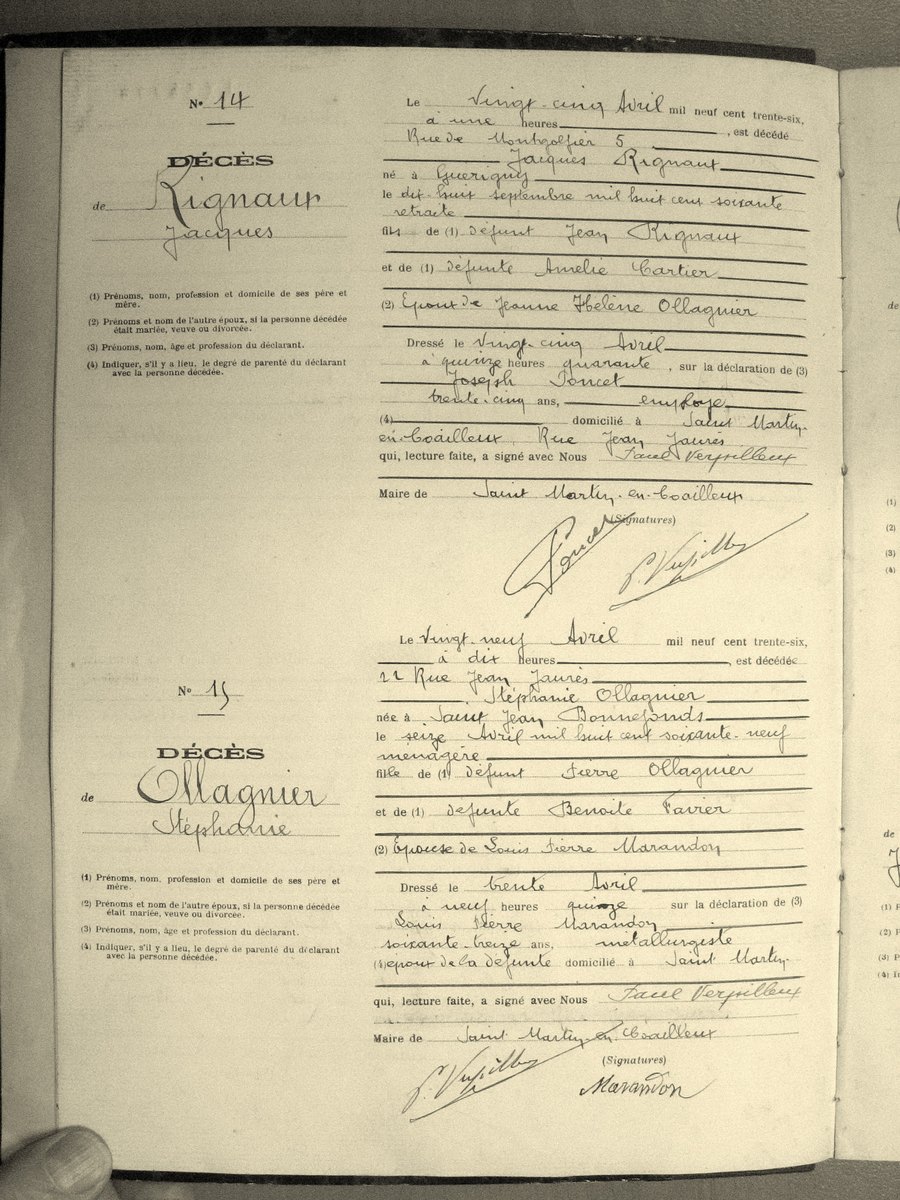 N° 14
DÉCÈS
de Rignaux
Jacques
(1) Prénoms, nom, profession et domicile de ses père et
mère.
(2) Prénoms et nom de l'autre époux, si la personne décédée
était mariée, veuve ou divorcée.
(3) Prénoms, nom, âge et profession du déclarant.
(4) Indiquer, s'il y a lieu, le degré de parenté du déclarant
avec la personne décédée.
Le Vingt-cinq Avril mil neuf cent trente-six,
à une heures, est décédé
Rue de Montgolfier 5
Jacques Rignaux
né à Guerigny
le dix-huit septembre mil huit cent soixante
retraité
fils de (1) défunt Jean Rignaux
et de (1) défunte Amelie Cartier
(2) Epoux de Jeanne Hélène Ollagnier
Dressé le Vingt-cinq Avril
à quinze heures quarante, sur la déclaration de (3)
Joseph Poncet
trente-cinq ans, employé
(4) domicilié à Saint Martin-
en-Coailleux Rue Jean Jaurès
qui, lecture faite, a signé avec Nous Paul Verpilleux
Maire de Saint Martin-en-Coailleux
(Signatures)
Poncet P. Verpilleux
N° 15
DÉCÈS
de Ollagnier
Stéphanie
(1) Prénoms, nom, profession et domicile de ses père et
mère.
(2) Prénoms et nom de l'autre époux, si la personne décédée
était mariée, veuve ou divorcée.
(3) Prénoms, nom, âge et profession du déclarant.
(4) Indiquer, s'il y a lieu, le degré de parenté du déclarant
avec la personne décédée.
Le Vingt-neuf Avril mil neuf cent trente-six,
à dix heures, est décédée
22 Rue Jean Jaurès
Stéphanie Ollagnier
née à Saint Jean Bonnefonds
le seize Avril mil huit cent soixante-neuf
ménagère
fille de (1) défunt Pierre Ollagnier
et de (1) défunte Benoite Favrer
(2) Epouse de Louis Pierre Marandon
Dressé le trente Avril
à neuf heures quinze sur la déclaration de (3)
Louis Pierre Marandon
soixante-treize ans, métallurgiste
(4) époux de la défunte domicilié à Saint Martin-
qui, lecture faite, a signé avec Nous Paul Verpilleux
Maire de Saint Martin-en-Coailleux
(Signatures)
P. Verpilleux Marandon
de
(1)
(2)
(3)
(4)
de
J
(1) P
(2) P
(3) P
(4) In